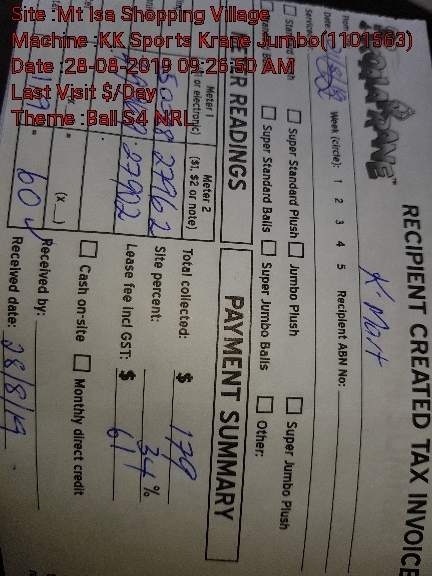 Site :Mt Isa Shopping Village
Machine :KK Sports Krane Jumbo(1101563)
Date :28-08-2019 09:26:50 AM
Last Visit $/Day
Theme :Ball S4 NRL
RECIPIENT CREATED TAX INVOICE
K Mart
Week (circle): 1 2 3 4 5 Recipient ABN No:
Super Standard Plush Jumbo Plush Super Jumbo Plush
Super Standard Balls Super Jumbo Balls Other:
METER READINGS PAYMENT SUMMARY
Meter 2
($1, $2 or note)
or electronic)
27962
27902
60
Total collected: $ 179
Site percent: 34 %
Lease fee incl GST: $ 61
Cash on-site Monthly direct credit
Received by:
Received date: 28/8/19